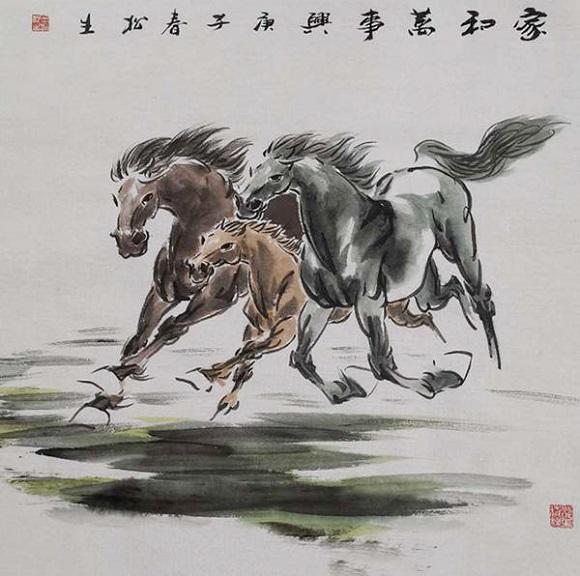 家和萬事興庚子春松生